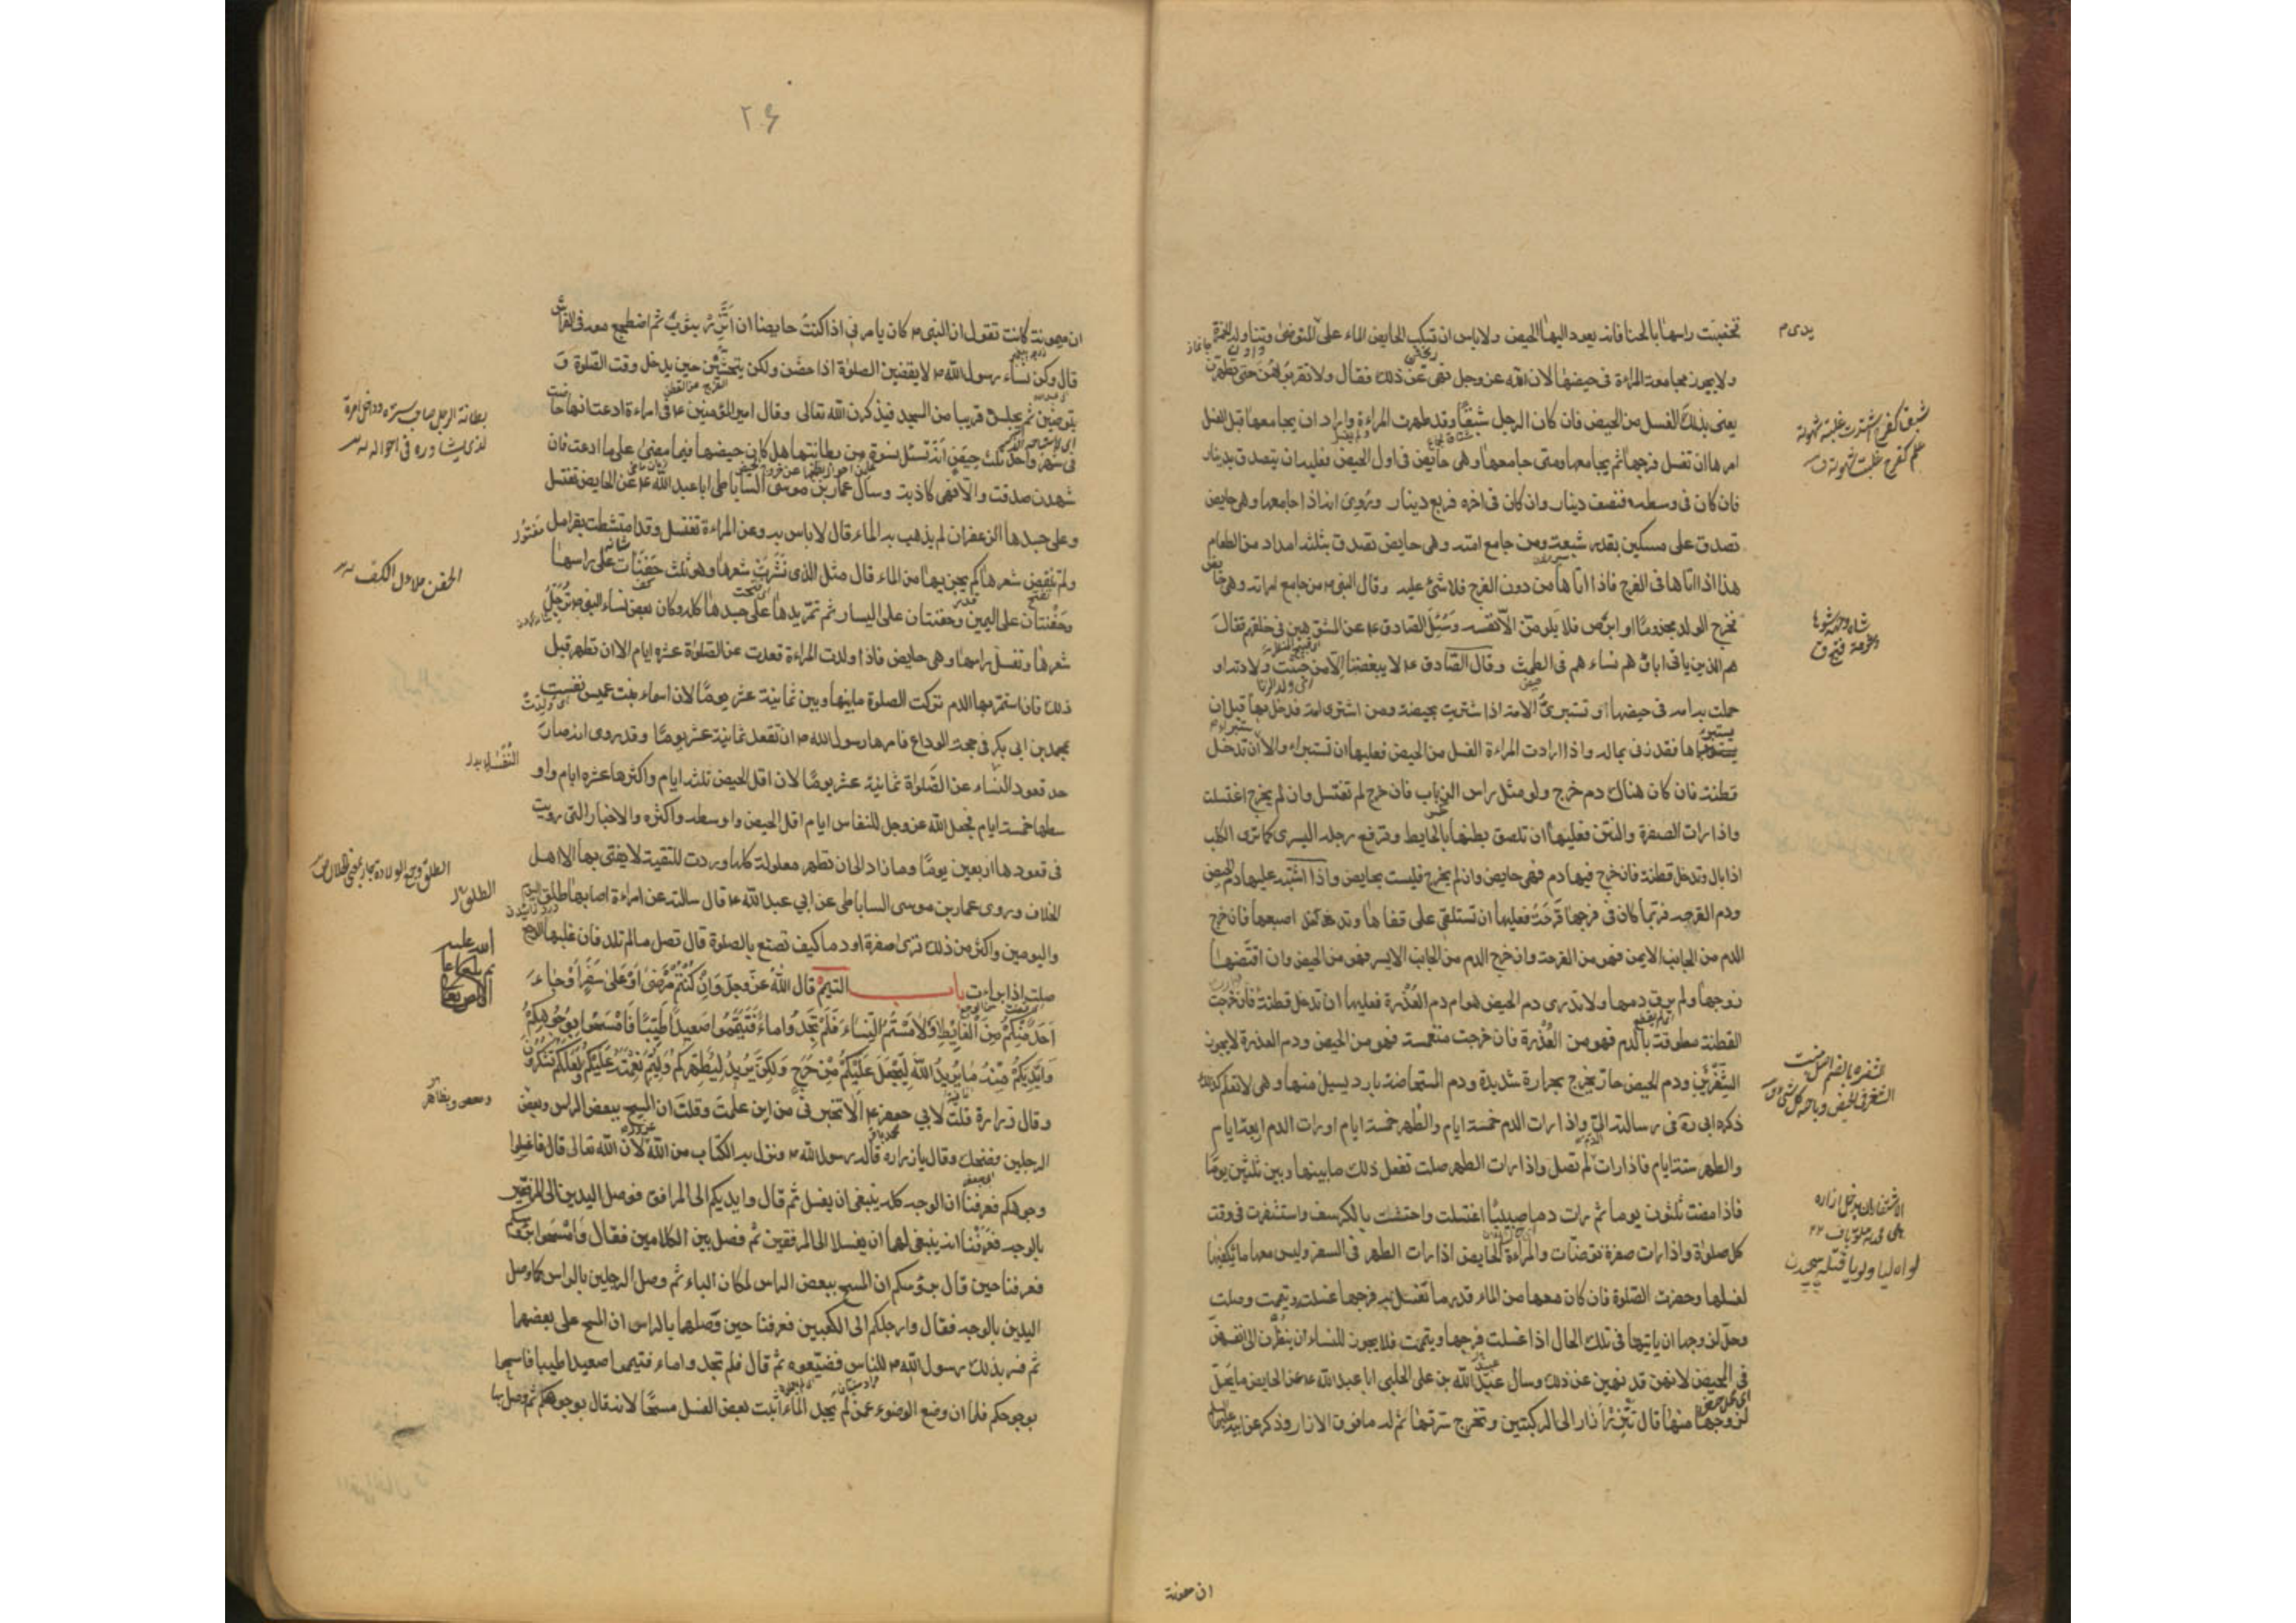 تختضبت راسها بالحنا فانه يعود اليها الحيض ولا باس ان تسكب الحايض الماء على المتوضى وتناوله الخمرة
ولا يجوز مجامعة المراءة فى حيضها لان الله عز وجل نهى عن ذلك فقال ولا تقربوهن حتى يطهرن
يعنى بذلك الغسل من الحيض فان كان الرجل شبقًا وقد طهرت المراءة واراد ان يجامعها قبل الغسل
امرها ان تغسل فرجها ثم يجامعها ومتى جامعها وهى حايض فى اول الحيض فعليه ان يتصدق بدينار
فان كان فى وسطه فنصف دينار وان كان فى اخره فربع دينار وروى انه اذا جامعها وهى حايض
تصدق على مسكين بقدر شبعه ومن جامع امته وهى حايض تصدق بثلثه امداد من الطعام
هذا اذا اتاها فى الفرج فاذا اتاها من دون الفرج فلا شئ عليه وقال النبى من جامع امراته وهى حايض
فخرج الولد مجذومًا او ابرص فلا يلومن الا نفسه وسئل الصادق ع عن المشوهين فى خلقهم فقال
هم الذين ياتى اباؤهم نساءهم فى الطمث وقال الصادق ع لا يبغضنا الا من خبثت ولادته او
حملت به امه فى حيضها او تستبرئ الامة اذا اشتريت بحيضة ومن اشترى امة فدخل بها قبل ان
يستبرئها فقد زنى بماله واذا ارادت المراءة الغسل من الحيض فعليها ان تستبراء والا ان تدخل
قطنة فان كان هناك دم خرج ولو مثل راس الذباب فان خرج لم تغتسل وان لم يخرج اغتسلت
واذا رات الصفرة والنتن فعليها ان تلصق بطنها بالحايط وترفع رجلها اليسرى كما ترى الكلب
اذا بال وتدخل قطنة فان خرج فيها دم فهى حايض وان لم يخرج فليست بحايض واذا اشتبه عليها دم الحيض
ودم القرحه فربما كان فى فرجها قرحة فعليها ان تستلقى على قفاها وتدخل اصبعها فان خرج
الدم من الجانب الايمن فهو من القرحة وان خرج الدم من الجانب الايسر فهو من الحيض وان اقتضها
زوجها ولم يرق دمها ولا تدرى دم الحيض هو ام دم العذرة فعليها ان تدخل قطنة فان خرجت
القطنة مطوقة بالدم فهو من العذرة فان خرجت منغمسة فهو من الحيض ودم العذرة لا يجوز
الشفرين ودم الحيض حار يخرج بحرارة شديدة ودم المستحاضة بارد يسيل منها وهى لا تعلم كذلك
ذكره ابى ره فى رسالته الى واذا رات الدم خمسة ايام والطهر خمسة ايام او رات الدم اربعة ايام
والطهر ستة ايام فاذا رات لم تصل واذا رات الطهر صلت تفعل ذلك ما بينها وبين ثلثين يومًا
فاذا مضت ثلثون يوما ثم رات دما صبيبًا اغتسلت واحتشت بالكرسف واستثفرت فى وقت
كل صلوة واذا رات صفرة توضات والمراءة الحايض اذا رات الطهر فى السفر وليس معها ما يكفيها
لغسلها وحضرت الصلوة فان كان معها من الماء قدر ما تغسل به فرجها غسلت وتيممت وصلت
وحل لزوجها ان ياتيها فى تلك الحال اذا غسلت فرجها وتيممت فلا يجوز للنساء ان ينظرن الى انفسهن
فى المحيض لانهن قد نهين عن ذلك وسال عبيد الله بن على الحلبى ابا عبد الله ع عن الحايض ما يحل
لزوجها منها قال تتزر بازار الى الركبتين وتخرج سرتها ثم له ما فوق الازار وذكر عن ابيه
ان ميمونة
٢٤
ان ميمونة كانت تقول ان النبى كان يامرنى اذا كنت حايضا ان اتزر بثوب ثم اضطجع معه فى الفراش
قال وكن نساء رسول الله لا يقضين الصلوة اذا حضن ولكن يتحشين حين يدخل وقت الصلوة و
يتوضين ثم يجلسن قريبا من المسجد فيذكرن الله تعالى وقال امير المؤمنين ع فى امراءة ادعت انها حاضت
فى شهر واحد ثلث حيض انه تسئل نسوة من بطانتها هل كان حيضها فيما مضى على ما ادعت فان
شهدن صدقت والا فهى كاذبة وسال عمار بن موسى الساباطى ابا عبد الله ع عن الحايض تغتسل
وعلى جسدها الزعفران لم يذهب به الماء قال لا باس به وعن المراءة تغتسل وقد امتشطت بقرامل
ولم تنقض شعرها كم يجزيها من الماء قال مثل الذى نشرت شعرها وهو ثلث حفنات على راسها
وحفنتان على اليمين وحفنتان على اليسار ثم تمر يدها على جسدها كله وكان بعض نساء النبى ترجل
شعرها وتغسل راسها وهى حايض فاذا ولدت المراءة قعدت عن الصلوة عشره ايام الا ان تطهر قبل
ذلك فان استمر بها الدم تركت الصلوة ما بينها وبين ثمانية عشر يومًا لان اسماء بنت عميس نفست
بمحمد بن ابى بكر فى حجة الوداع فامرها رسول الله ان تقعد ثمانية عشر يومًا وقد روى انه صار
حد قعود النساء عن الصلوة ثمانية عشر يومًا لان اقل الحيض ثلثه ايام واكثرها عشره ايام واو
سطها خمسة ايام فجعل الله عز وجل للنفاس ايام اقل الحيض واوسطه واكثره والاخبار التى رويت
فى قعودها اربعين يومًا وما زاد الى ان تطهر معلولة كلها وردت للتقية لا يفتى بها الا اهل
الخلاف وروى عمار بن موسى الساباطى عن ابي عبد الله ع قال سالته عن امراءة اصابها طلق اليوم
واليومين واكثر من ذلك ترى صفرة او دما كيف تصنع بالصلوة قال تصل ما لم تلد فان غلبها الوجع
صلت اذا براءت باب التيمم قال الله عز وجل وان كنتم مرضى او على سفر او جاء
احد منكم من الغائط او لامستم النساء فلم تجدوا ماء فتيمموا صعيدا طيبا فامسحوا بوجوهكم
وايديكم منه ما يريد الله ليجعل عليكم من حرج ولكن يريد ليطهركم وليتم نعمته عليكم لعلكم تشكرون
وقال زرارة قلت لابي جعفر ع الا تخبرنى من اين علمت وقلت ان المسح ببعض الراس وبعض
الرجلين فضحك وقال يا زراره قاله رسول الله ونزل به الكتاب من الله لان الله تعالى قال فاغسلوا
وجوهكم فعرفنا ان الوجه كله ينبغى ان يغسل ثم قال وايديكم الى المرافق فوصل اليدين الى المرفقين
بالوجه فعرفنا انه ينبغى لها ان يغسلا الى المرفقين ثم فصل بين الكلامين فقال وامسحوا برؤسكم
فعرفنا حين قال برؤسكم ان المسح ببعض الراس لمكان الباء ثم وصل الرجلين بالراس كما وصل
اليدين بالوجه فقال وارجلكم الى الكعبين فعرفنا حين وصلها بالراس ان المسح على بعضها
ثم فسر بذلك رسول الله للناس فضيعوه ثم قال فلم تجدوا ماء فتيمموا صعيدا طيبا فامسحوا
بوجوهكم فلما ان وضع الوضوء عمن لم يجد الماء اثبت بعض الغسل مسحًا لانه قال بوجوهكم ثم وصل بها